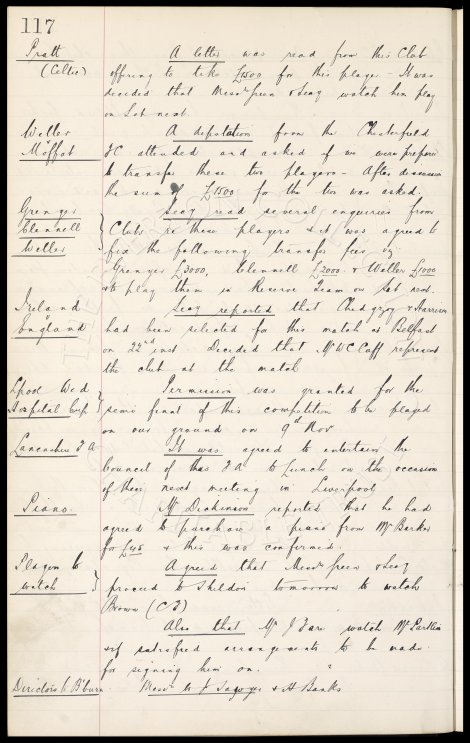 117
Pratt
(Celtic)
A letter was read from this Club
offering to take £1500 for this player - It was
decided that Messrs Green & Seay watch him play
on Sat next.
Weller
&
Moffat
A deputation from the Chesterfield
FC attended and asked if we were prepared
to transfer these two players - After discussion
the sum of £1500 for the two was asked.
Grenyer
Clennell
Weller
Seay read several enquiries from
Clubs re these players & it was agreed to
fix the following transfer fees viz
Grenyer £3000, Clennell £2000 & Weller £1000
& to play them in Reserve Team on Sat next.
Ireland
v
England
Seay reported that Chedgzoy & Harrison
had been selected for this match at Belfast
on 22nd inst. Decided that Mr W C Cuff represent
the club at the match
Lpool Wed
Hospital Cup
Permission was granted for the
semi final of this competition to be played
on our ground on 9th Nov
Lancashire F A
It was agreed to entertain the
Council of this F A to Lunch on the occasion
of their next meeting in Liverpool
Piano.
Mr Dickinson reported that he had
agreed to purchase a piano from Mr Barker
for £45 & this was confirmed.
Players to
watch
Agreed that Messrs Green & Seay
proceed to Shildon tomorrow to watch
Brown (CF)
Also that Mr J Fare watch
& if satisfied arrangements to be made
for signing him on.
Directors to B'burn.
Messrs & A Banks